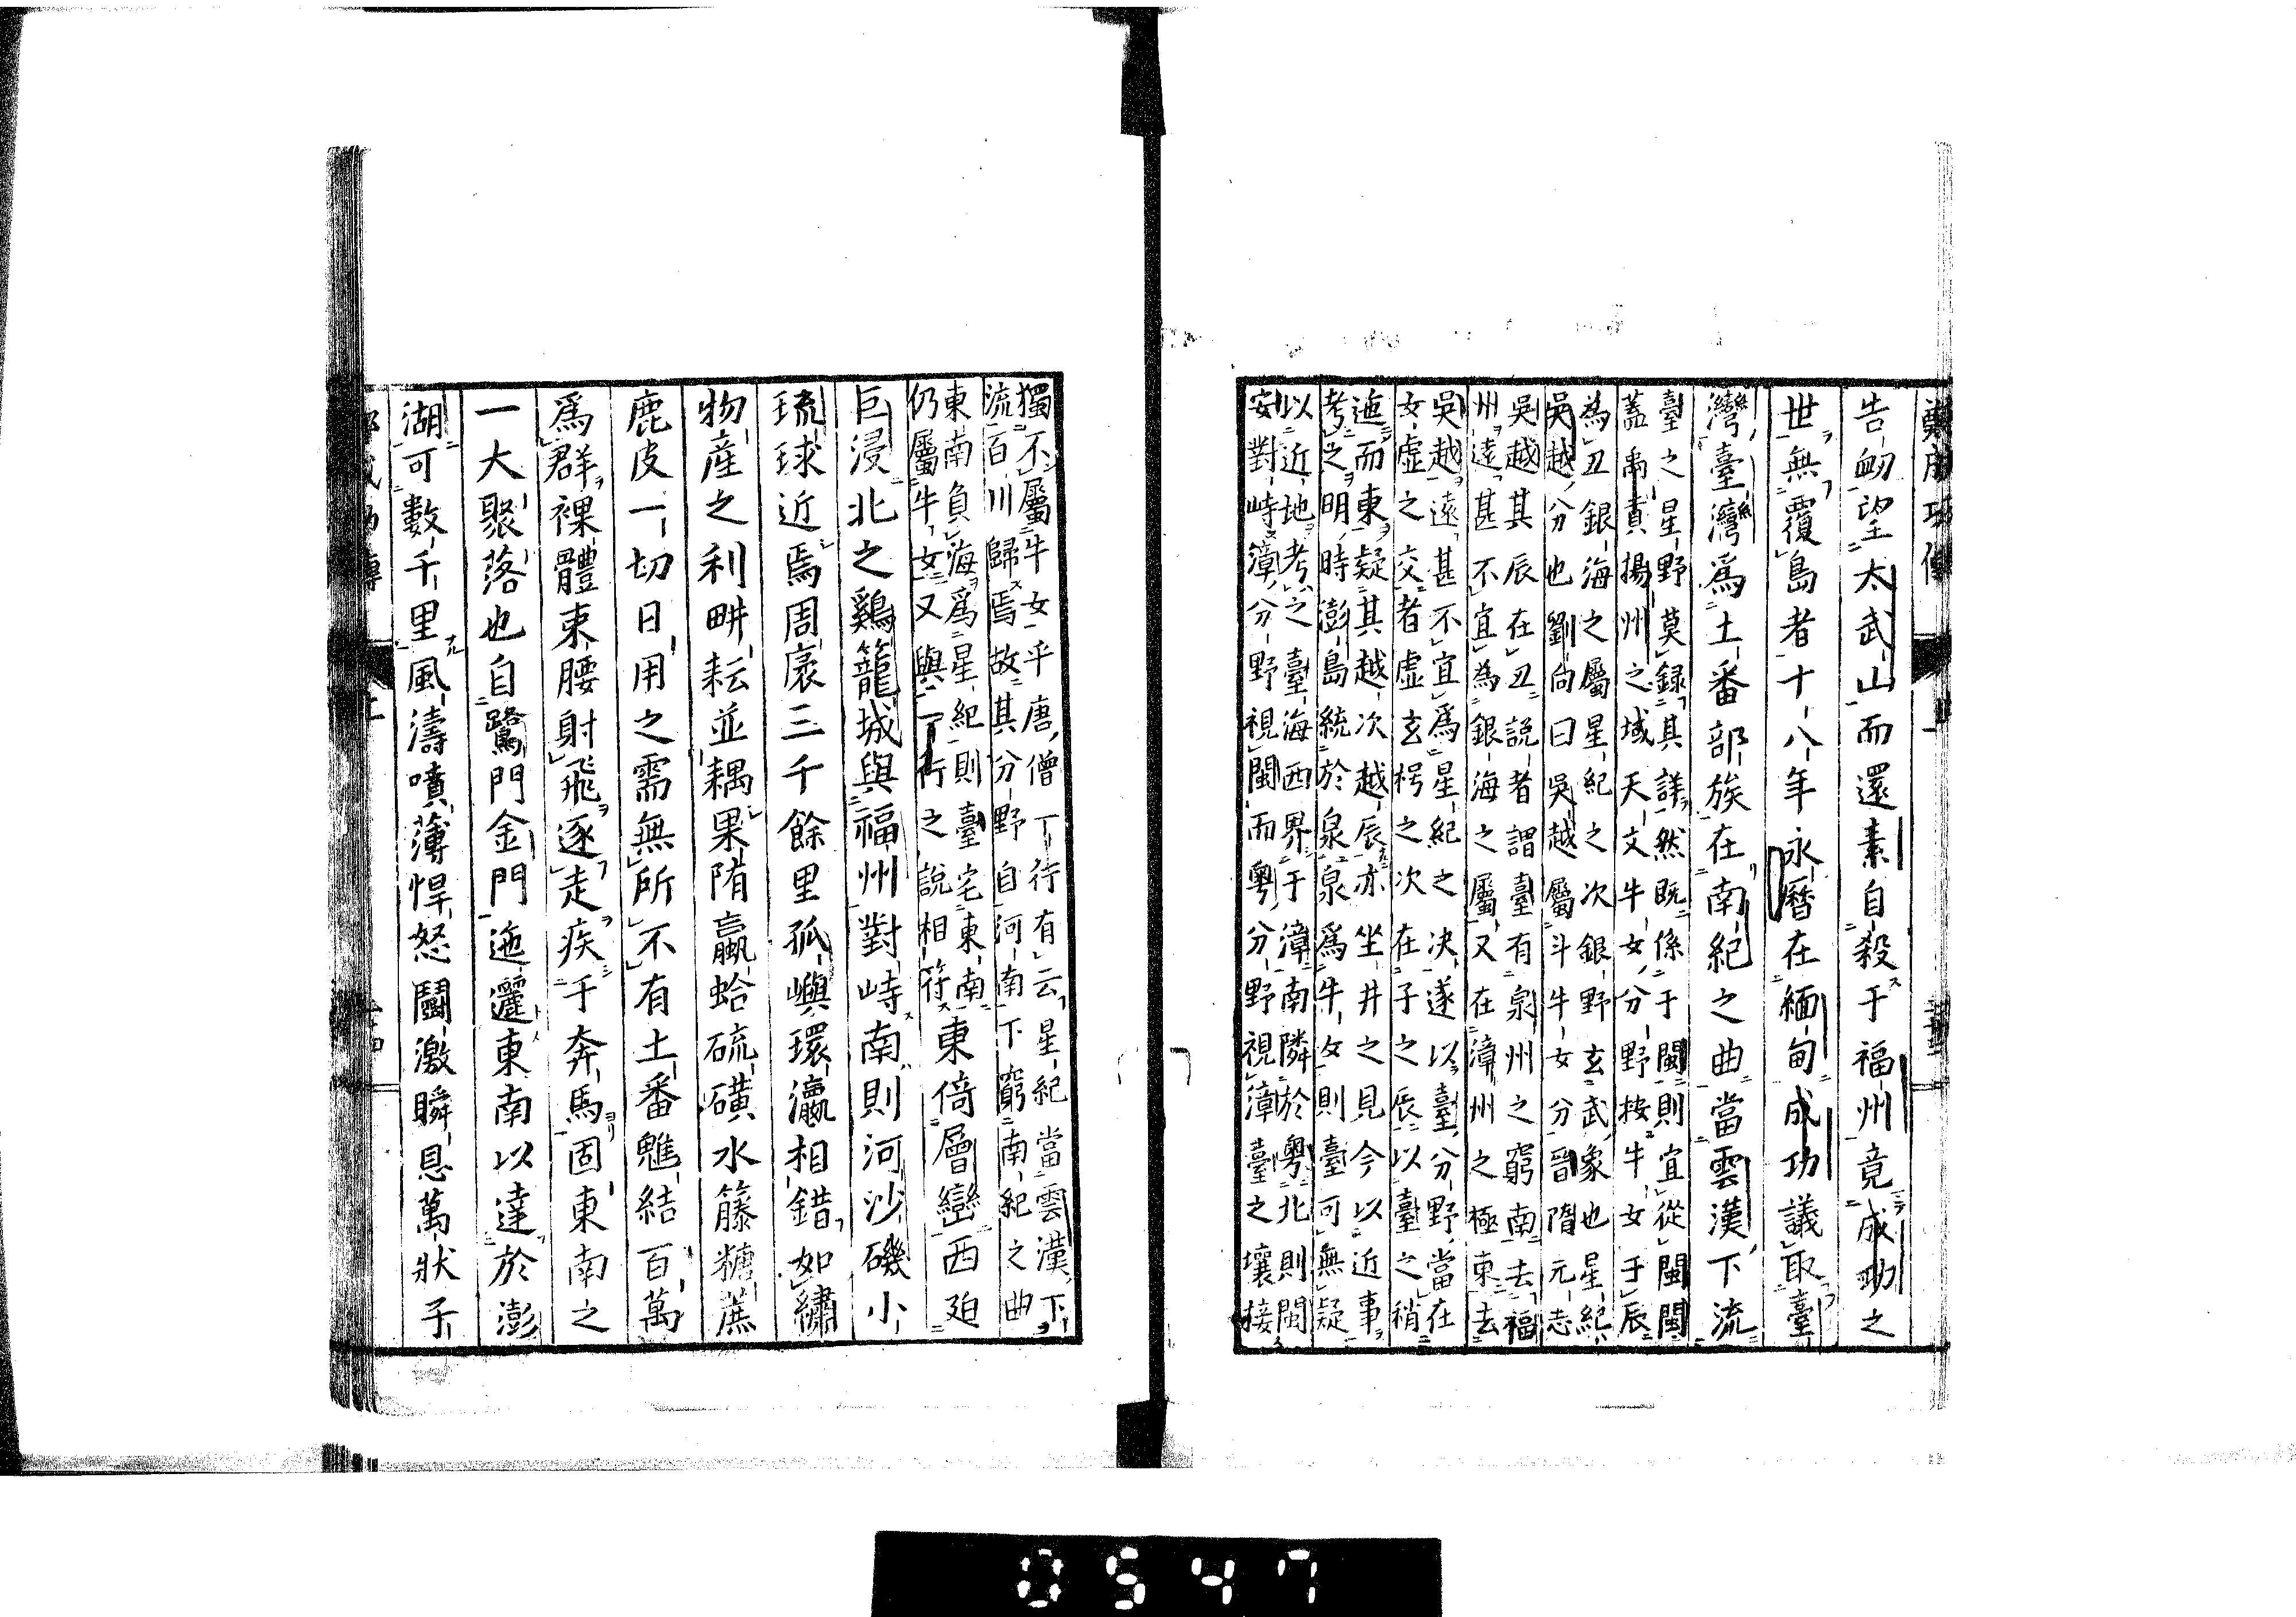 鄭成功傳
告衂望太武山而還素自殺于福州竟成功之
世無覆島者十八年永曆在緬甸成功議取臺
灣臺灣爲土番部族在南紀之曲當雲漢下流
臺之星野莫録其詳然既係于閩則宜從閩閩
蓋禹貢揚州之域天文牛女分野按牛女于辰
為丑銀海之屬星紀之次銀野玄武象也星紀
吳越分也劉向曰吳越屬斗牛女分晉隋元志
吳越其辰在丑説者謂臺有泉州之窮南去福
州遠甚不宜為銀海之屬又在漳州之極東去
吳越遠甚不宜爲星紀之决遂以臺分野當在
女虛之交者虛玄枵之次在子之辰以臺之稍
迤而東疑其越次越辰亦坐井之見今以近事
考之明時澎島統於泉泉爲牛女則臺可無疑
以近地考之臺海西界于漳南隣於粵北則閩
安對峙漳分野視閩而粵分野視漳臺之壤接
獨不屬牛女乎唐僧一行有云星紀當雲漢下
流百川歸焉故其分野自河南下窮南紀之曲
東南負海爲星紀則臺宅東南
仍屬牛女又與一行之説相符
東倚層巒西廹
巨浸北之鷄籠城與福州對峙南則河沙磯小
琉球近焉周袤三千餘里孤嶼環瀛相錯如繡
物產之利畊耘並耦果陏蠃蛤硫磺水籐糖蔗
鹿皮一切日用之需無所不有土番魋結百萬
爲群裸體束腰射飛逐走疾于奔馬固東南之
一大聚落也自鷺門金門迤邐東南以達於澎
湖可數千里風濤噴薄悍怒鬪激瞬息萬狀子
0547